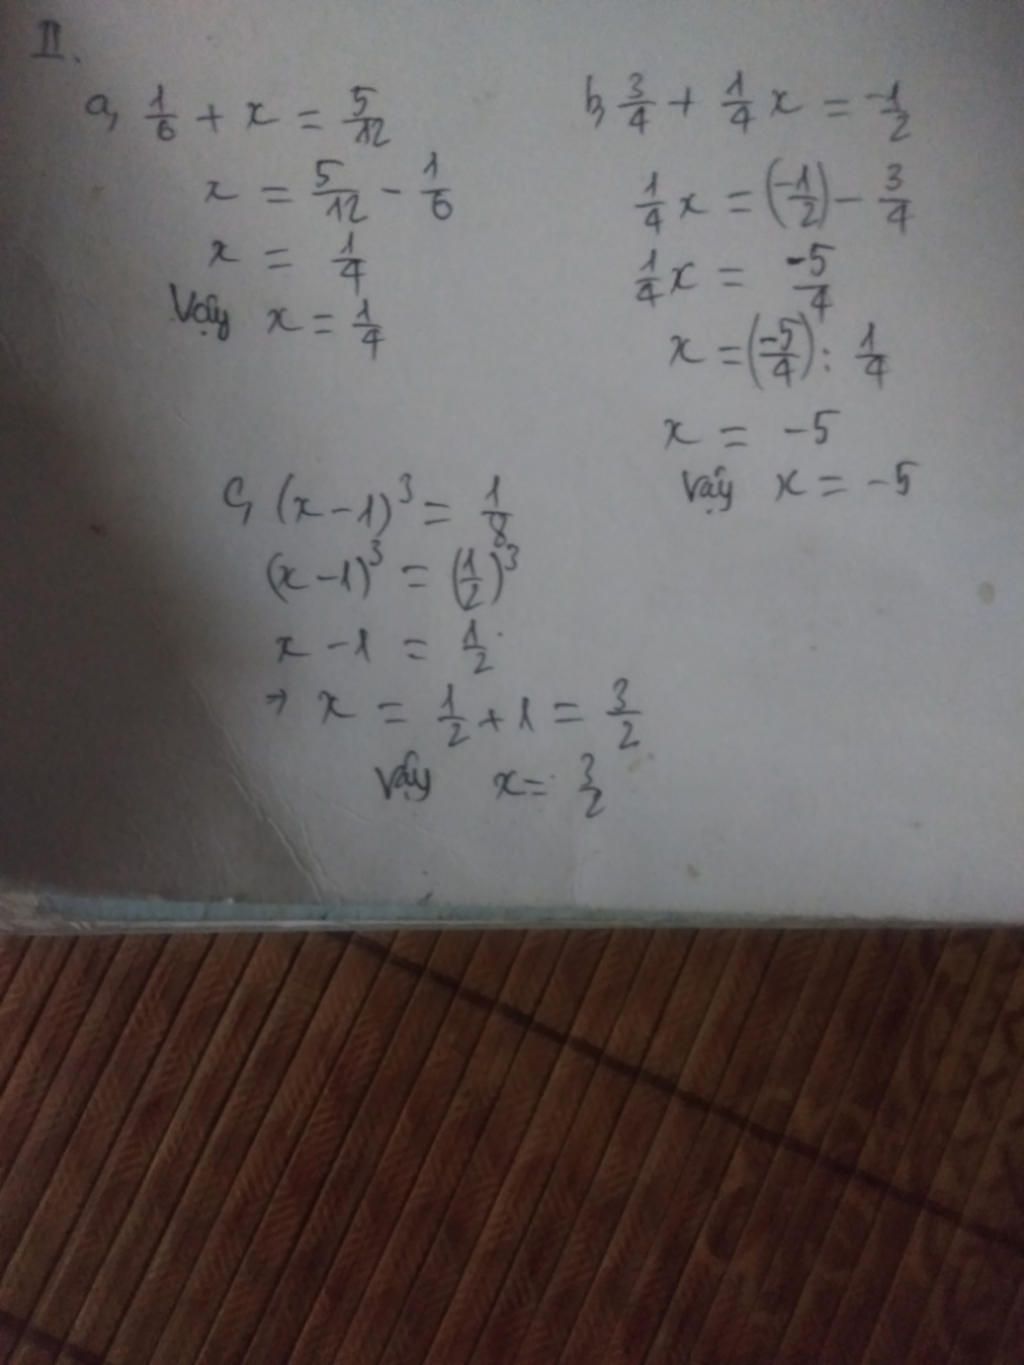 II.
a, 1/6 + x = 5/12
x = 5/12 - 1/6
x = 1/4
Vậy x = 1/4
b, 3/4 + 1/4 x = -1/2
1/4 x = (-1/2) - 3/4
1/4 x = -5/4
x = (-5/4) : 1/4
x = -5
Vậy x = -5
c, (x - 1)³ = 1/8
(x - 1)³ = (1/2)³
x - 1 = 1/2
→ x = 1/2 + 1 = 3/2
Vậy x = 3/2